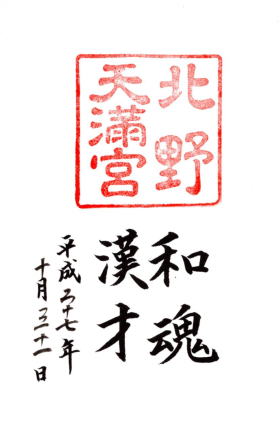 北野
天満宮
和魂
漢才
平成二十七年
十月三十一日